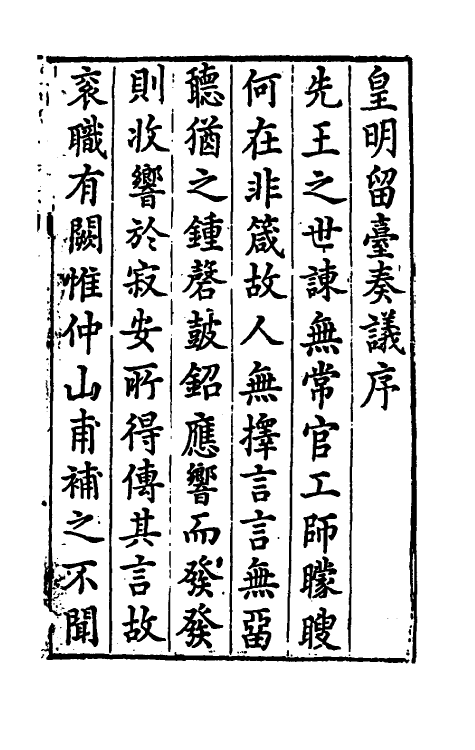 皇明留臺奏議序
先王之世諫無常官工師矇瞍
何在非箴故人無擇言言無啚
聽猶之鍾磬鼓鉊應響而發發
則收響於寂安所得傳其言故
衮職有闕惟仲山甫補之不聞